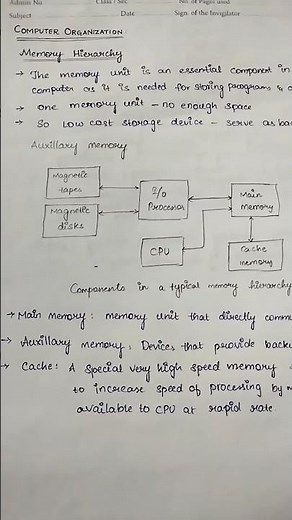 Admn No.
Class / Sec
No. of Pages used
Subject
Date
Sign. of the Invigilator
COMPUTER ORGANIZATION
Memory Hierarchy
→ The memory unit is an essential component in
computer as it is needed for storing programs &
→ one memory unit - no enough space
→ So Low cost storage device - serve as
Auxillary memory
Magnetic
tapes
Magnetic
disks
I/O
Processor
Main
memory
CPU
Cache
memory
Components in a typical memory hierarchy
→ Main memory : memory unit that directly
→ Auxillary memory : Devices that provide
→ Cache : A special very high speed memory
to increase speed of processing by
available to CPU at rapid rate